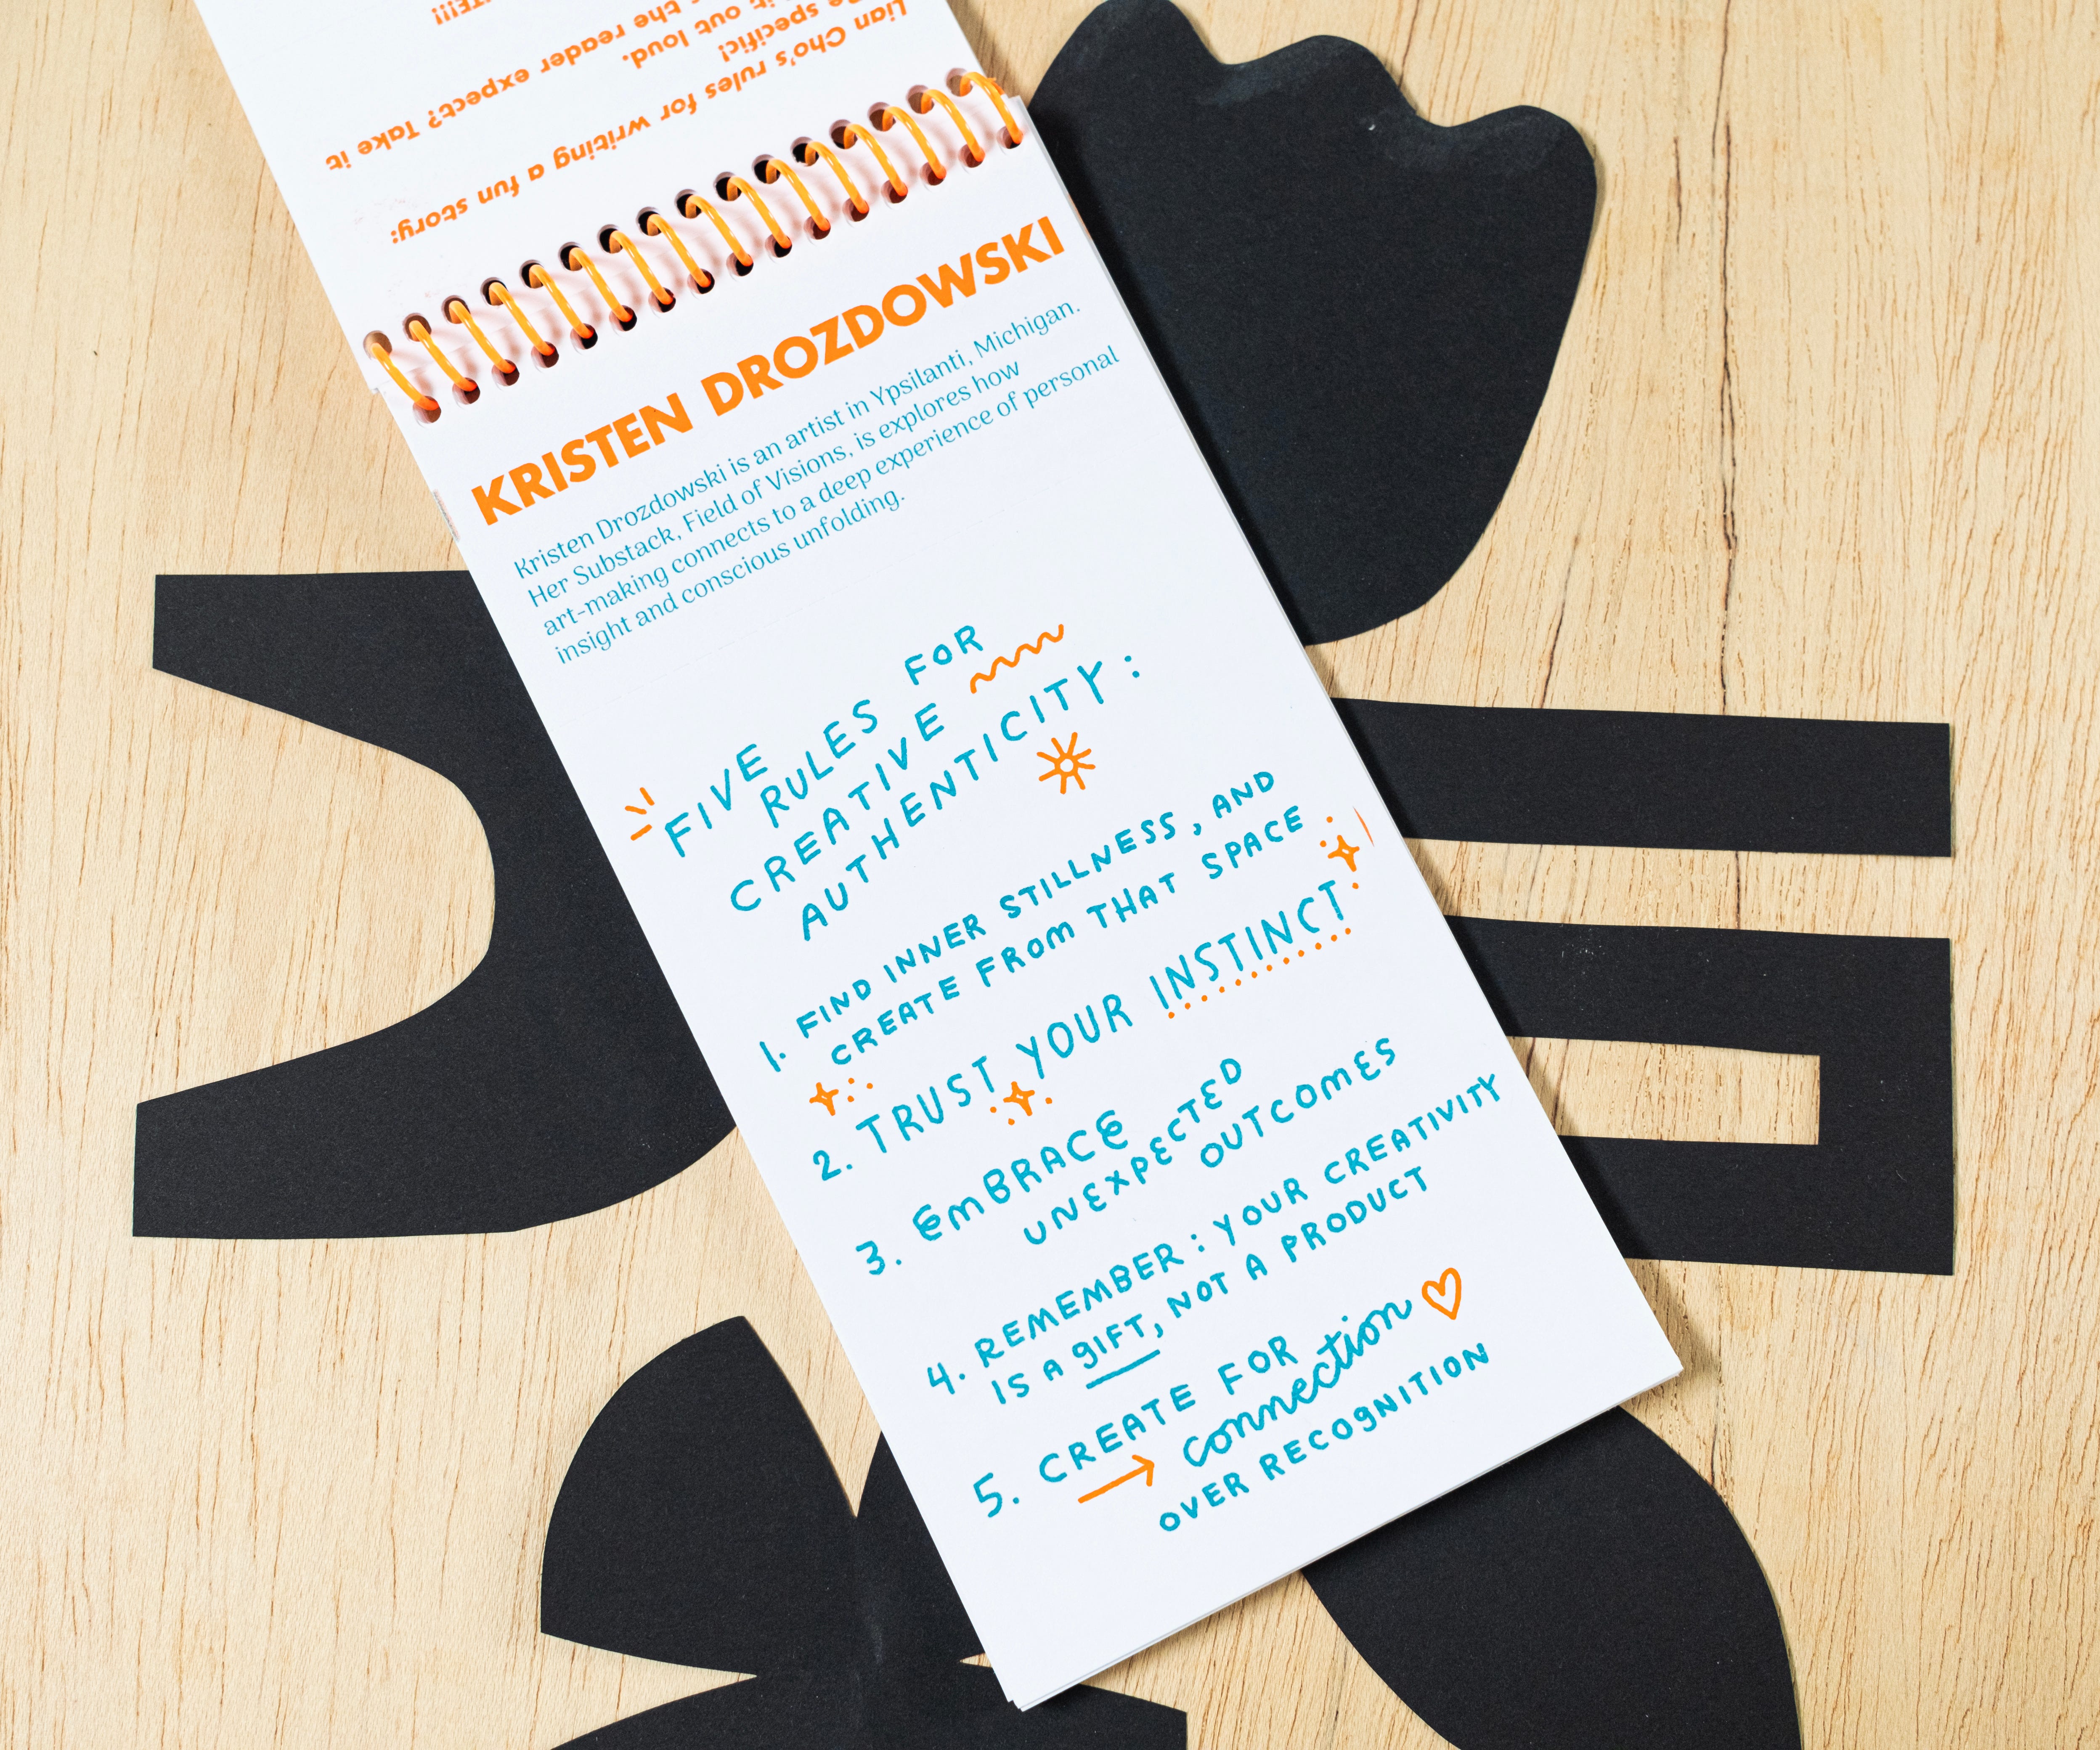 Lian Cho's rules for writing a fun story:
specific!
it out loud.
the reader expect? Take it
KRISTEN DROZDOWSKI
Kristen Drozdowski is an artist in Ypsilanti, Michigan.
Her Substack, Field of Visions, is explores how
art-making connects to a deep experience of personal
insight and conscious unfolding.
FIVE
RULES FOR
CREATIVE
AUTHENTICITY:
1. FIND INNER STILLNESS, AND
CREATE FROM THAT SPACE
2. TRUST YOUR INSTINCT
3. EMBRACE
UNEXPECTED
OUTCOMES
4. REMEMBER: YOUR CREATIVITY
IS A GIFT, NOT A PRODUCT
5. CREATE FOR
connection
OVER RECOGNITION